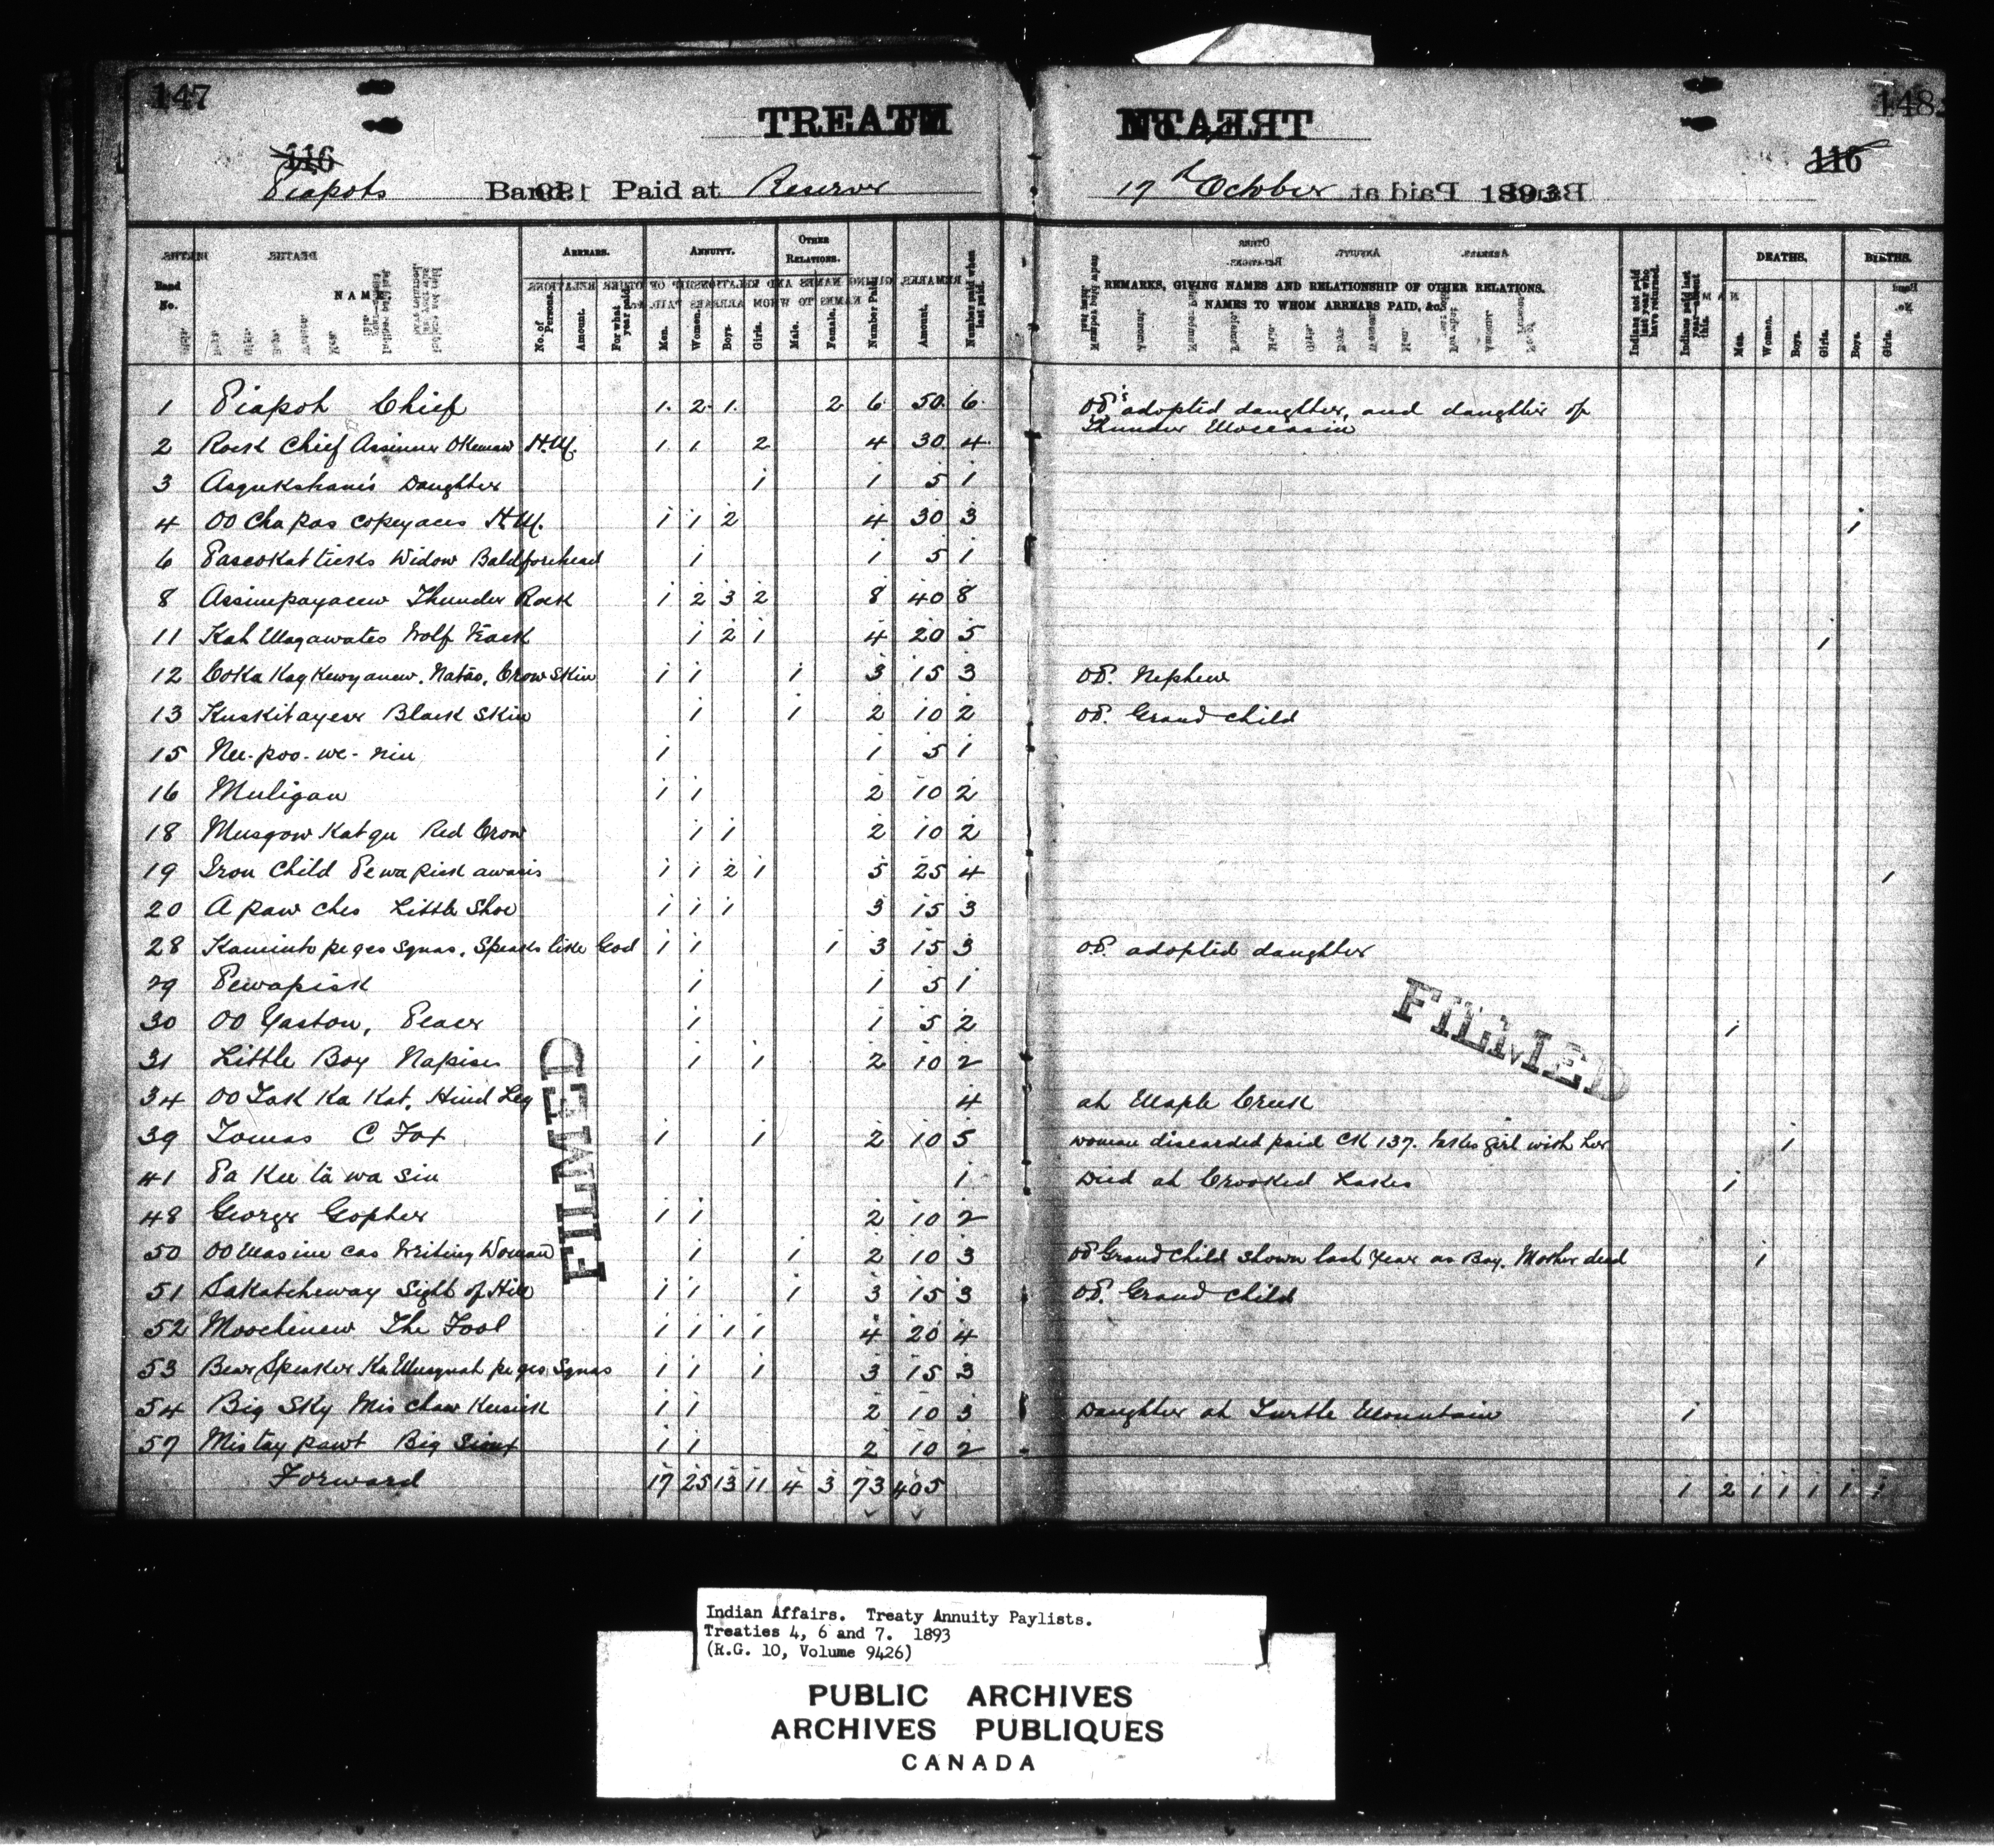 147
148
TREATY
116
116
Piapots Band. Paid at Reserve
17th October 1893
Band No.
NAME
ARREARS.
ANNUITY.
OTHER RELATIONS.
No. of Persons.
Amount.
For what year paid.
Men.
Women.
Boys.
Girls.
Male.
Female.
Number Paid.
Amount.
Number paid when last paid.
REMARKS, GIVING NAMES AND RELATIONSHIP OF OTHER RELATIONS, NAMES TO WHOM ARREARS PAID, &c.
Indians not paid last year who have returned.
Indians paid last year absent this.
DEATHS.
Men.
Women.
Boys.
Girls.
BIRTHS.
Boys.
Girls.
1 Piapot Chief 1 2 1 2 6 50 6 adopted daughter, and daughter of
Thunder Moccasin
2 Rock Chief Assinew Okemaw H.M. 1 1 2 4 30 4
3 Daughter 1 1 5 1
4 OO Cha pas copeyaces H.M. 1 1 2 4 30 3 1
6 Paseokatticks Widow Baldforehead 1 1 5 1
8 Assinepayacew Thunder Rock 1 2 3 2 8 40 8
11 Kah Magawates Wolf 1 2 1 4 20 5 1
12 Crow Skin 1 1 1 3 15 3 Nephew
13 Kuskitayew Black Skin 1 1 2 10 2 Grand Child
15 Nee-poo-we-nin 1 1 5 1
16 Muligan 1 1 2 10 2
18 Musqow Kat qu Red Crow 1 1 2 10 2
19 Iron Child Pewapisk awasis 1 1 2 1 5 25 4 1
20 A paw ches Little Shoe 1 1 1 3 15 3
28 Kaminto pe qes Squas, Speaks like God 1 1 1 3 15 3 adopted daughter
29 Pewapisk 1 1 5 1
30 OO Yastow, 1 1 5 2 1
31 Little Boy Napisis 1 1 2 10 2
34 OO Task Ka Kat, Hind Leg 4 at Maple Creek
39 Tomas C Fox 1 1 2 10 5 woman discarded paid CK 137. takes girl with her 1
41 Pa Kee ta wa sin 1 Died at Crooked Lakes 1
48 George Gopher 1 1 2 10 2
50 OO Masine cas Writing Woman 1 1 2 10 3 Grand Child shown last year as Boy. Mother dead 1
51 Sakatcheway Sight of Hill 1 1 1 3 15 3 Grand Child
52 Moochenew The Fool 1 1 1 1 4 20 4
53 Bear Speaker Ka Musquah pe qes Squas 1 1 1 3 15 3
54 Big Sky Mis chaw Kesick 1 1 2 10 3 Daughter at Turtle Mountain 1
57 Mistay pawt Big Sioux 1 1 2 10 2
Forward 17 25 13 11 4 3 73 405 1 2 1 1 1 1 1
FILMED
FILMED
Indian Affairs. Treaty Annuity Paylists.
Treaties 4, 6 and 7. 1893
(R.G. 10, Volume 9426)
PUBLIC ARCHIVES
ARCHIVES PUBLIQUES
CANADA